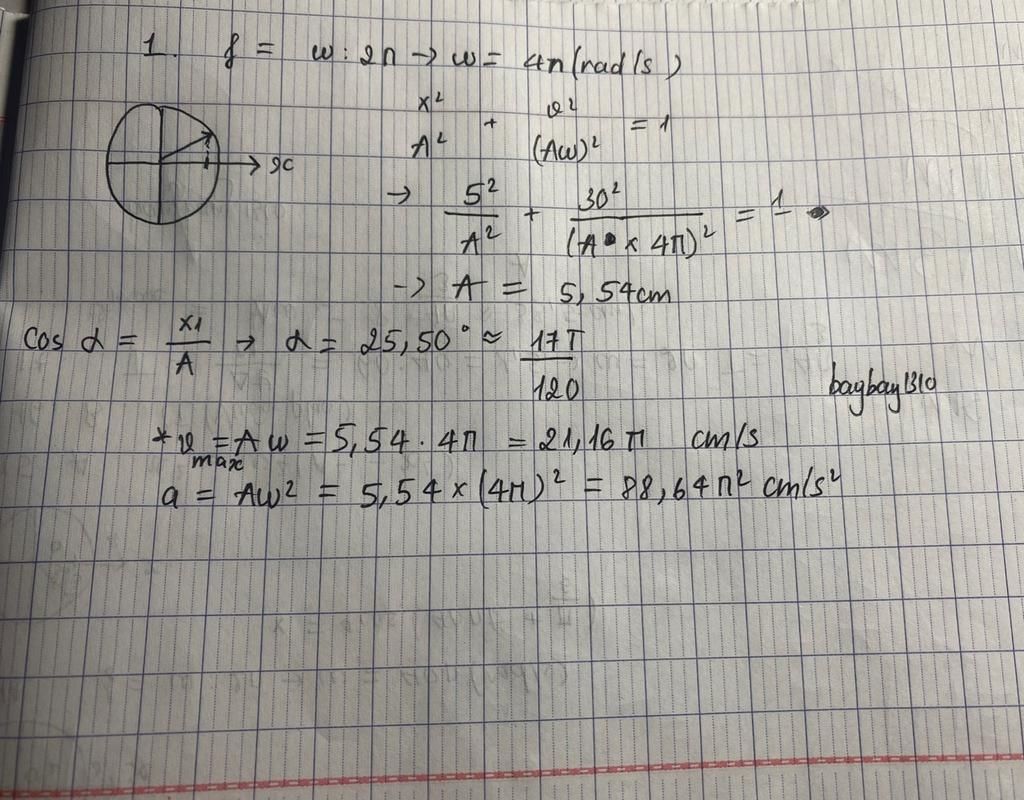 1. f = w : 2π → w = 4π (rad/s)
x² / A² + v² / (Aw)² = 1
x
→ 5² / A² + 30² / (A × 4π)² = 1
→ A = 5,54cm
cos α = x1 / A → α = 25,50° ≈ 17π / 120
baybay1310
* v max = Aw = 5,54 . 4π = 21,16 π cm/s
a = Aw² = 5,54 × (4π)² = 88,64π² cm/s²